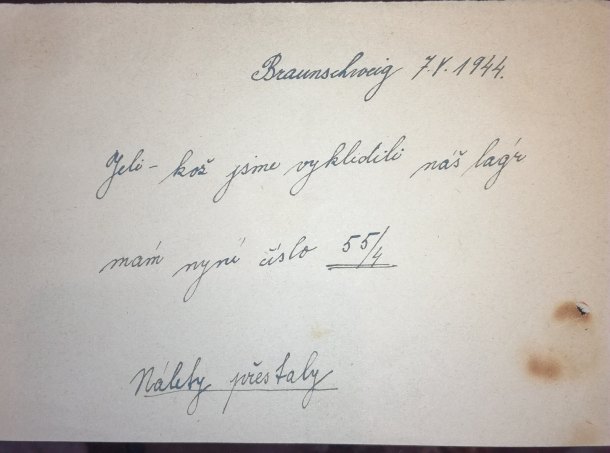 Braunschweig 7.V.1944.
Jeli-kož jsme vyklidili náš lágr
mám nyní číslo 55/4
Nálety přestaly